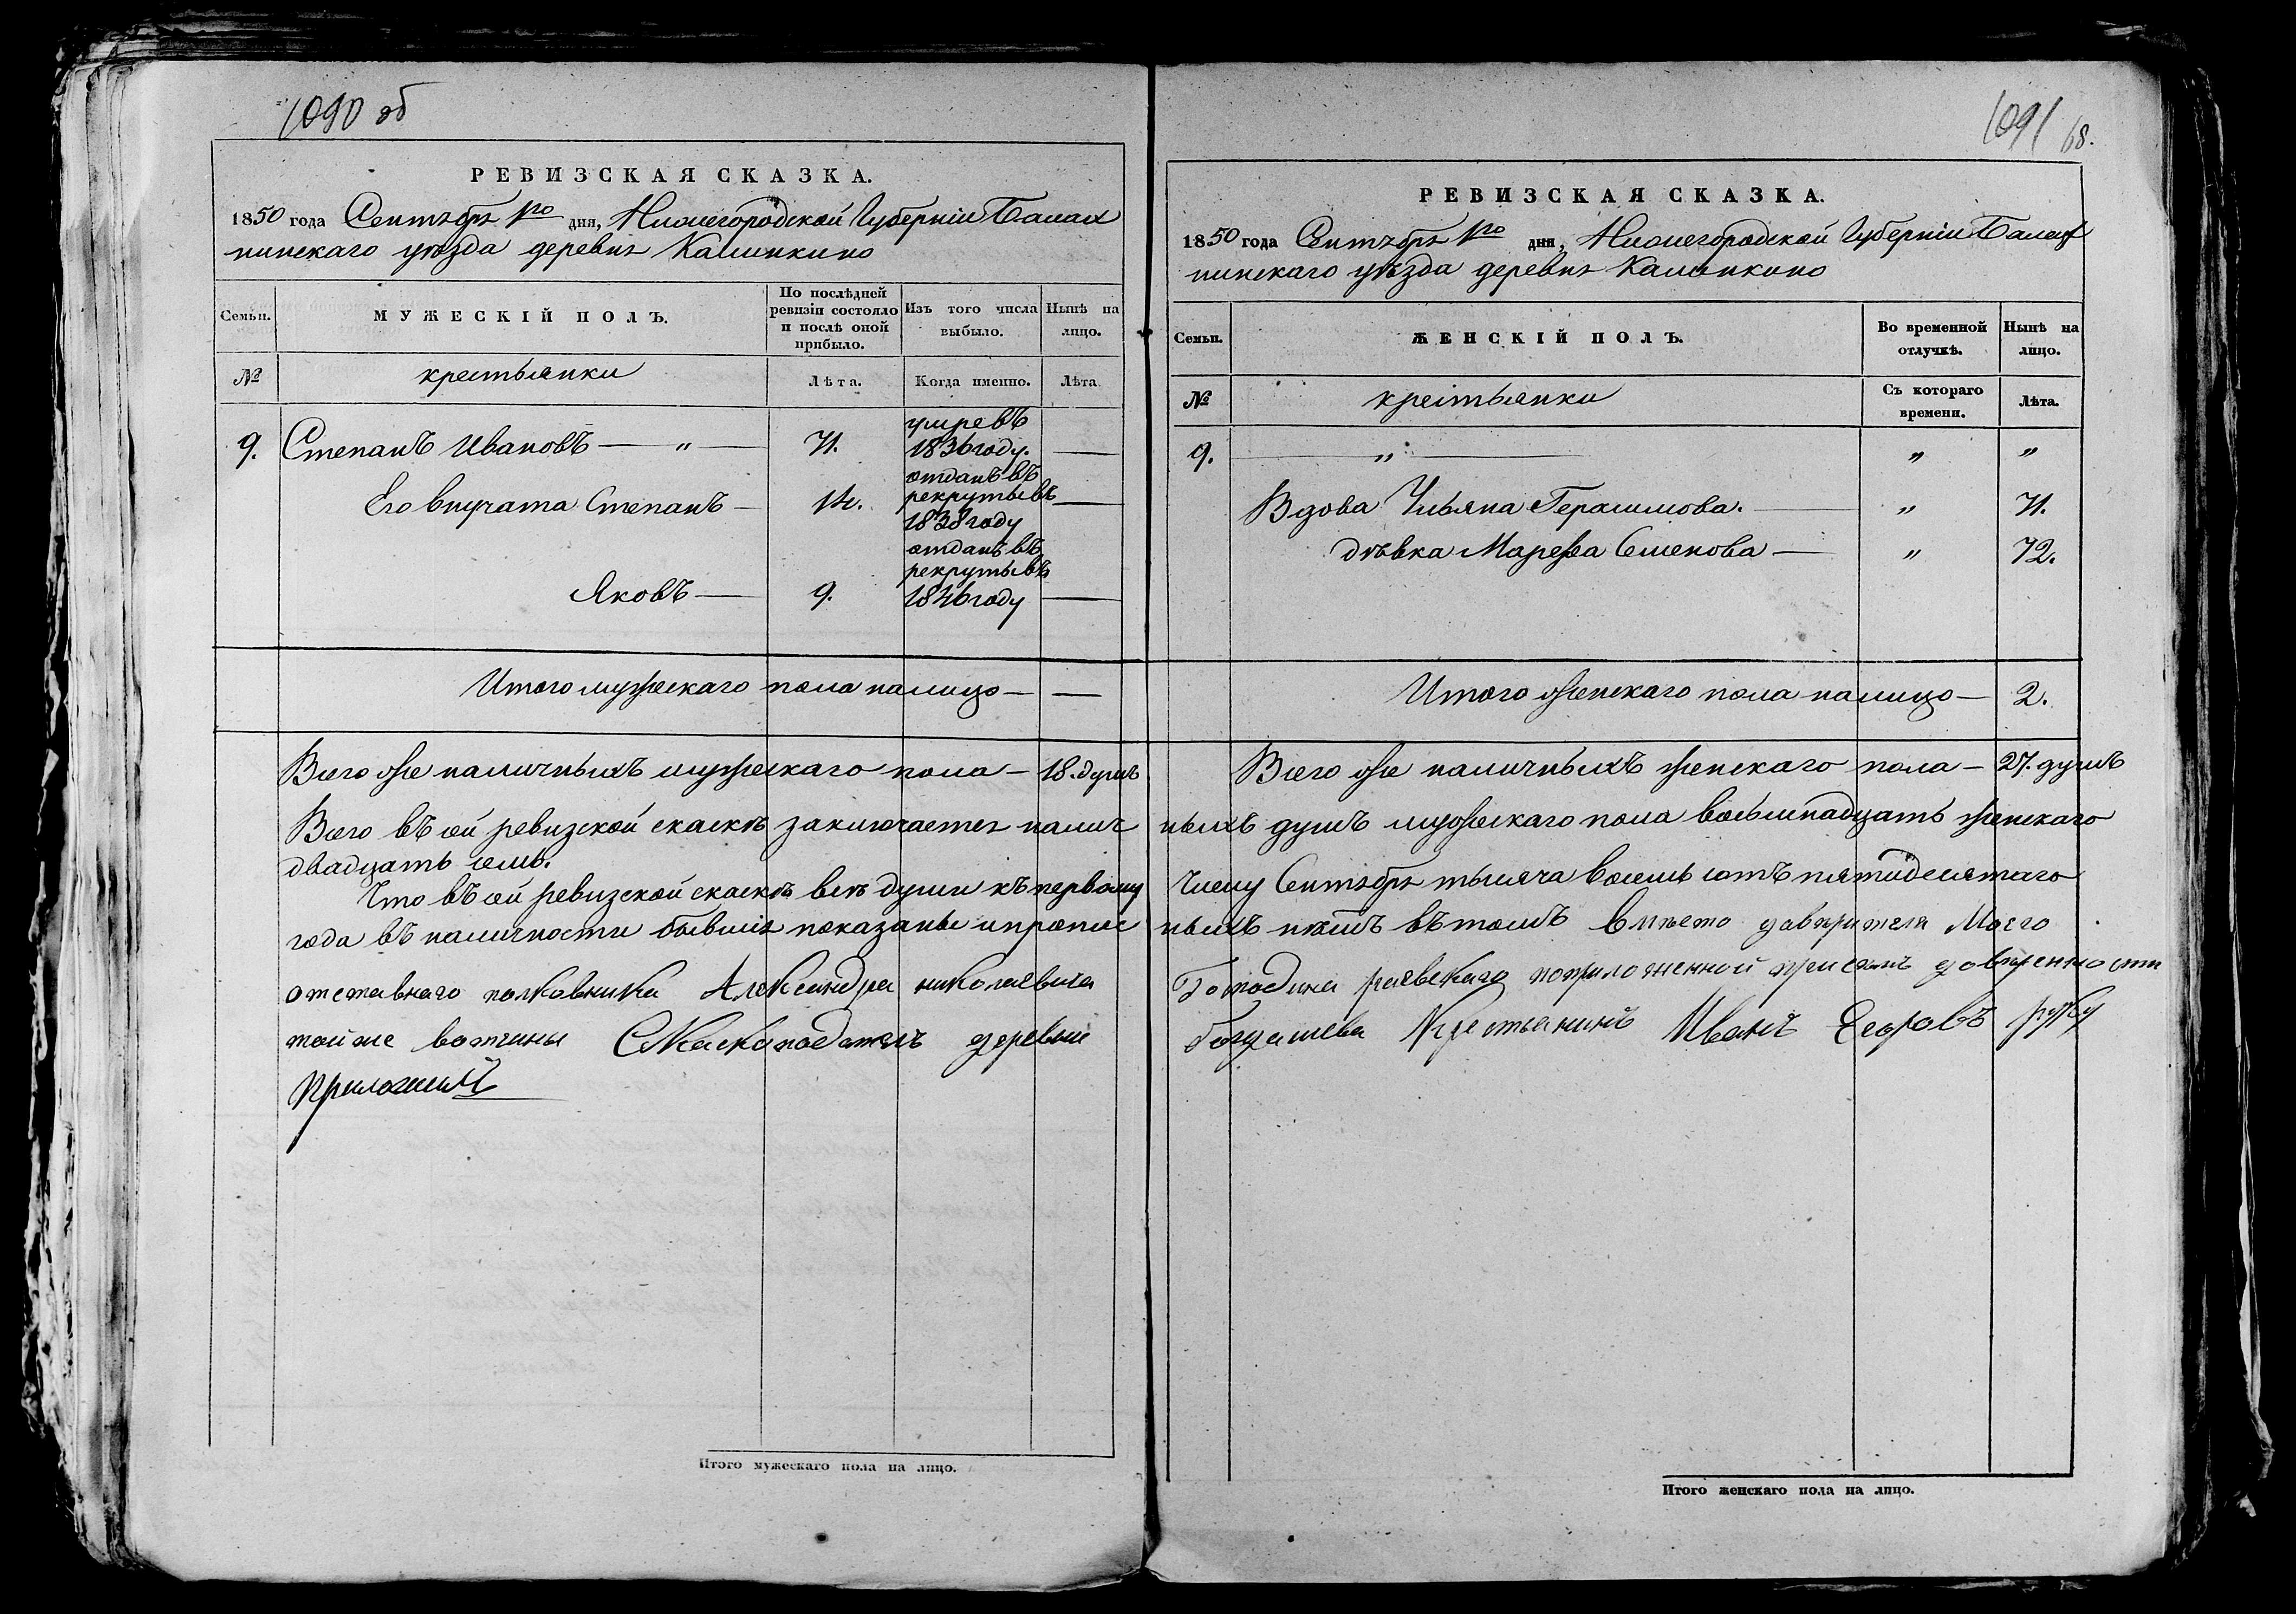 1090 об
РЕВИЗСКАЯ СКАЗКА.
1850 года Сентября 1го дня, Нижегородской Губерніи Балах
нинскаго уѣзда деревня Калинкино
Семьи. МУЖЕСКІЙ ПОЛЪ. По послѣдней ревизіи состояло и послѣ оной прибыло. Изъ того числа выбыло. Нынѣ на лицо.
№ крестьянки Лѣта. Когда именно. Лѣта
9. Степанъ Ивановъ — " — 71. умре въ 1836 году. —
Его внучата Степанъ — 14. отданъ въ рекруты въ 1838 году —
Яковъ — 9. отданъ въ рекруты въ 1846 году —
Итого мужескаго пола налицо — —
Всего же наличныхъ мужескаго пола — 18. душъ
Всего въ сей ревизской скаскѣ заключается налич
двадцать семь.
Что въ сей ревизской скаскѣ всѣ души къ первому
года въ наличности бывшія показаны и пропис
отставнаго полковника Александра николаевича
той же вотчины Скаскоподатель деревни
приложилъ
Итого мужескаго пола на лицо.
1091 68.
РЕВИЗСКАЯ СКАЗКА.
1850 года Сентября 1го дня, Нижегородской Губерніи Балах
нинскаго уѣзда деревня Калинкино
Семьи. ЖЕНСКІЙ ПОЛЪ. Во временной отлучкѣ. Нынѣ на лицо.
№ крестьянки Съ котораго времени. Лѣта.
9. — " — " "
Вдова Ульяна Герасимова. — " 71.
дѣвка Марфа Семенова — " 72.
Итого женскаго пола налицо — 2.
Всего же наличныхъ женскаго пола — 27. душъ
ныхъ душъ мужескаго пола восьмнадцать женскаго
числу Сентября тысяча восемь сотъ пятидесятаго
ныхъ нѣтъ въ томъ вмѣсто давѣрителя Моего
Господина по приложенной при семъ довѣренности
Крестьянинъ Иванъ Егоровъ руку
Итого женскаго пола на лицо.